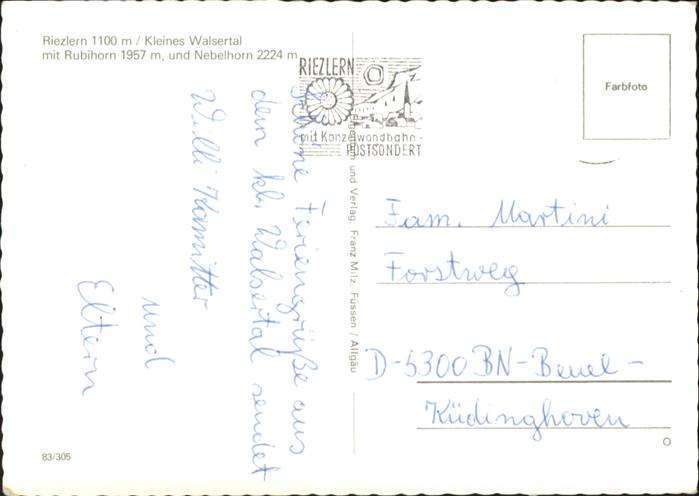 Riezlern 1100 m / Kleines Walsertal
mit Rubihorn 1957 m, und Nebelhorn 2224 m
RIEZLERN
mit Kanzelwandbahn -
POSTSONDERT
Farbfoto
Schöne Feriengrüße aus
dem kl. Walsertal sendet
Willi Kamitter
und
Eltern
Eigentum und Verlag. Franz Milz. Füssen / Allgäu
Fam. Martini
Forstweg
D-5300 BN-Beuel-
Küdinghoven
83/305